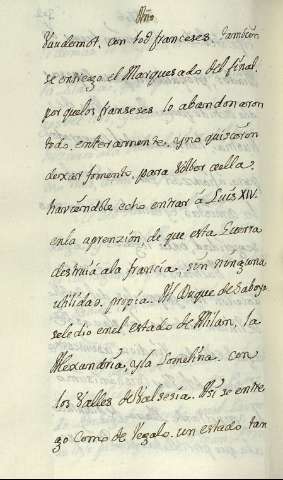 Año
Vaudemot, con tods franceses. tambien
se entrego el Marquesado del final,
por quelos franseses lo abandonaron
todo, enteramente, y no quiscoron
dexar fomento, para Volber aella.
haviendole echo entrar á Luis XIV.
enla aprenzion, de que esta Guerra
destruiá ala francia, sin ninguna
utilidad, propia. Al Duque de Saboya
seledio en el estado de Milan, la
Alexandria, y la Lomelina. con
los Valles de Valsesia. Asi se entre
go como de Regalo. un estado tan